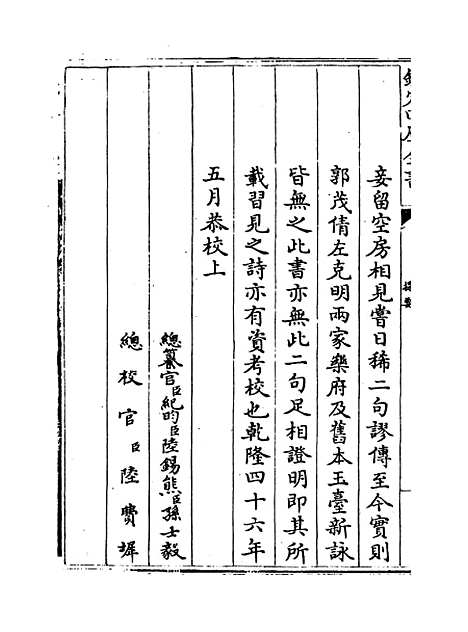 妾留空房相見嘗日稀二句謬傳至今實則
郭茂倩左克明兩家樂府及舊本玉臺新詠
皆無之此書亦無此二句足相證明即其所
載習見之詩亦有資考校也乾隆四十六年
五月恭校上
總纂官臣紀昀臣陸錫熊臣孫士毅
總校官臣陸費墀
提要